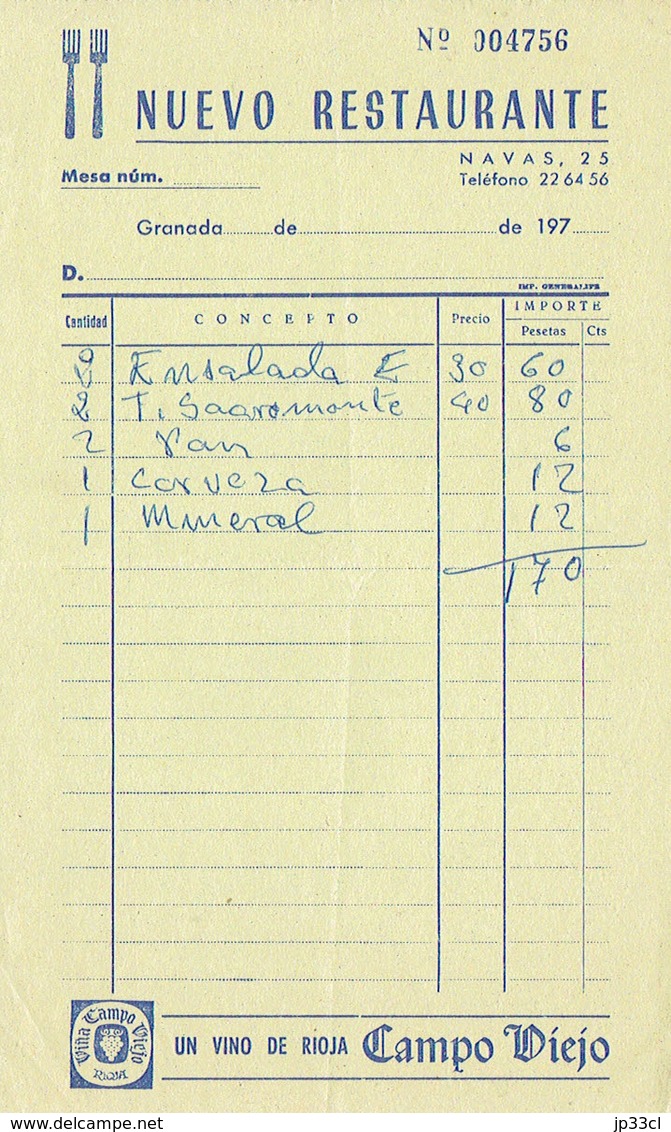 Nº 004756
NUEVO RESTAURANTE
NAVAS, 25
Mesa núm.
Teléfono 22 64 56
Granada de de 197
D.
IMP. GENERALIFE
Cantidad CONCEPTO Precio IMPORTE
Pesetas Cts
2 Ensalada E 30 60
2 T. Saaromonte 40 80
2 Pan 6
1 Corveza 12
1 Mineral 12
170
Viña Campo Viejo
RIOJA
UN VINO DE RIOJA Campo Viejo
delcampe.net
jp33cl